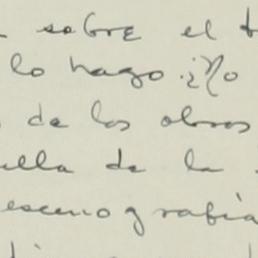 sobre el
lo hago. ¿No
de las obras
de la
escenografía